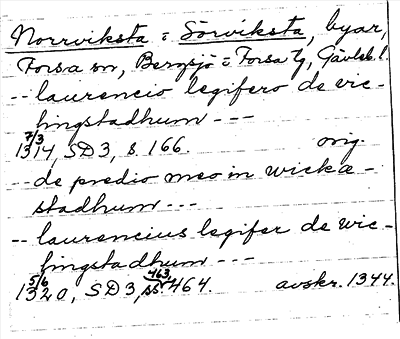 Norrviksta o. Sörviksta, byar,
Forsa sn, Bergsjö o. Forsa tg, Gävleb. l.
-- laurencio legifero de vic-
hingstadhum ---
7/3
1314, SD 3, s. 166. orig.
-- de predio meo in wicka-
stadhum ---
-- laurencius legifer de vic-
hingstadhum ---
5/6
1320, SD 3, ss 463, 464. avskr. 1344.